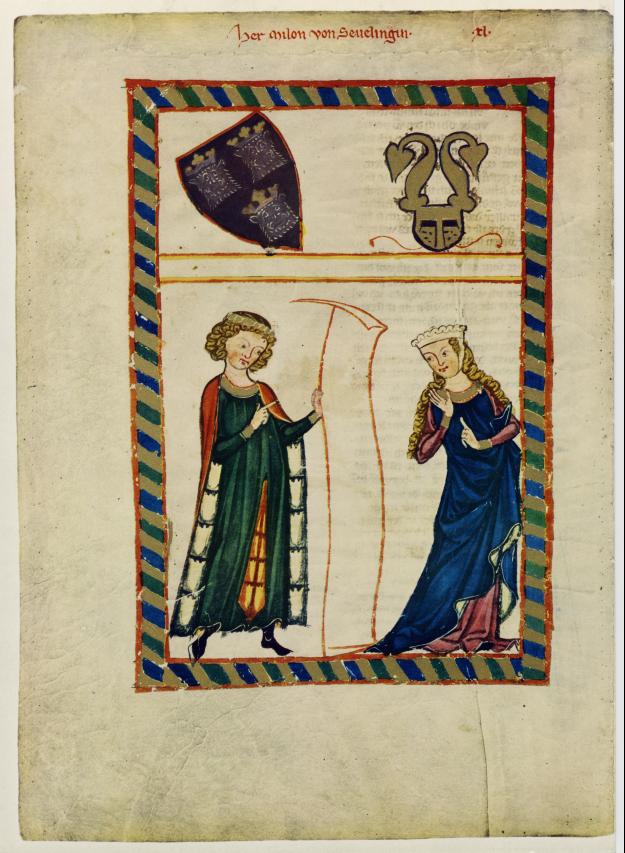 Her Milon von Seuelingin·
·xl·